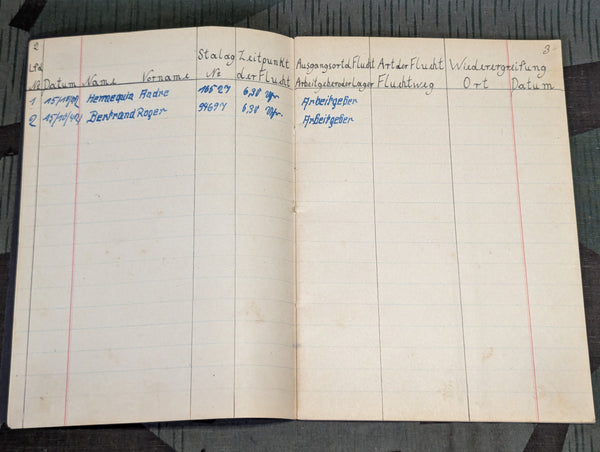 2
3
Stalag Zeitpunkt Ausgangsort d. Flucht Art der Flucht Wiederergreifung
Lfd.
Nr. Datum Name Vorname № der Flucht Arbeitgeber oder Lager Fluchtweg Ort Datum
1 Andre 6,30 Uhr. Arbeitgeber
2 15/10/42 Bertrand Roger 6,30 Uhr. Arbeitgeber